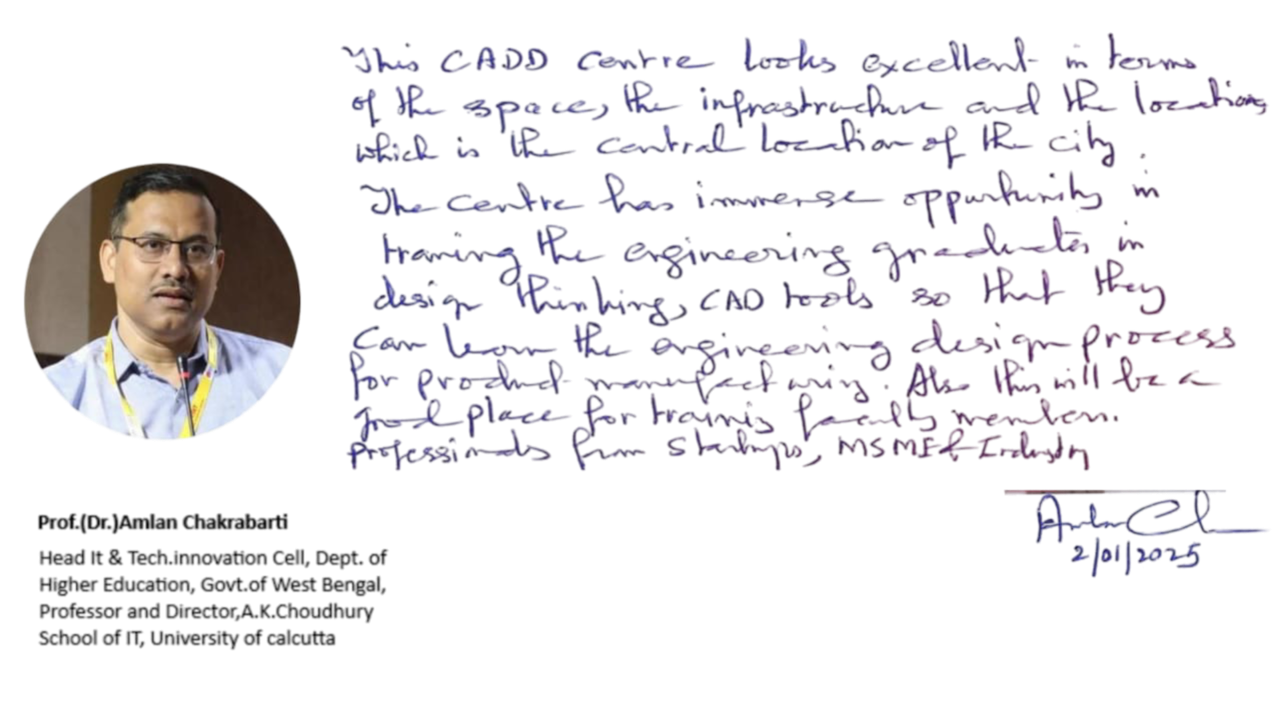 This CADD centre looks excellent in terms
of the space, the infrastructure and the location,
which is the central location of the city.
The centre has immense opportunity in
training the engineering graduates in
design thinking, CAD tools so that they
can learn the engineering design process
for product manufacturing. Also this will be a
good place for training faculty members.
professionals from Startups, MSME & Industry
2/01/2025
Prof.(Dr.)Amlan Chakrabarti
Head It & Tech.innovation Cell, Dept. of
Higher Education, Govt.of West Bengal,
Professor and Director,A.K.Choudhury
School of IT, University of calcutta